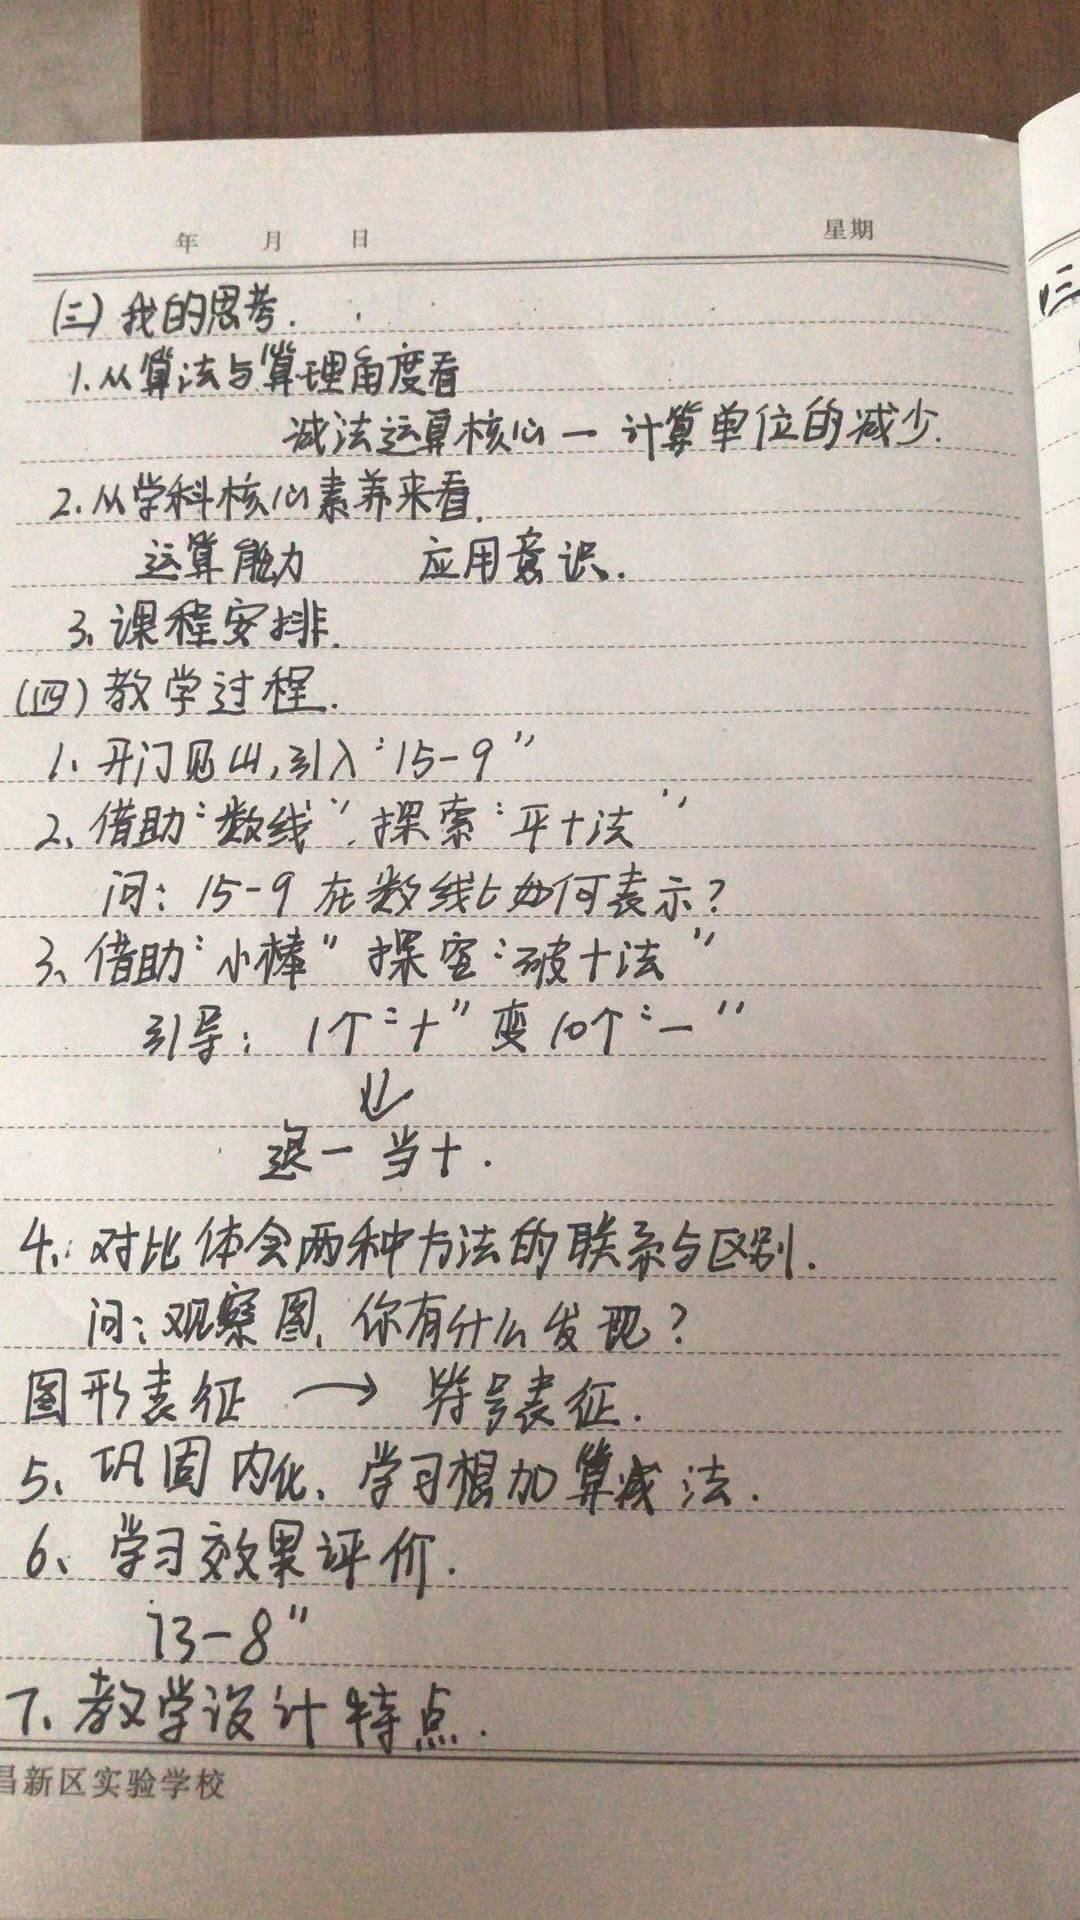 年 月 日 星期
(三) 我的思考.
1.从算法与算理角度看
减法运算核心一 计算单位的减少.
2.从学科核心素养来看.
运算能力 应用意识.
3.课程安排.
(四)教学过程.
1.开门见山,引入“15-9”
2、借助“数线”,探索“平十法”
问:15-9在数线上如何表示?
3、借助“小棒”探室“破十法”
引导: 1个“十”变10个“一”
退一当十.
4.对比体会两种方法的联系与区别.
问:观察图,你有什么发现?
图形表征 → 符号表征.
5、巩固内化、学习想加算减法.
6、学习效果评价.
13-8”
7、教学设计特点.
昌新区实验学校